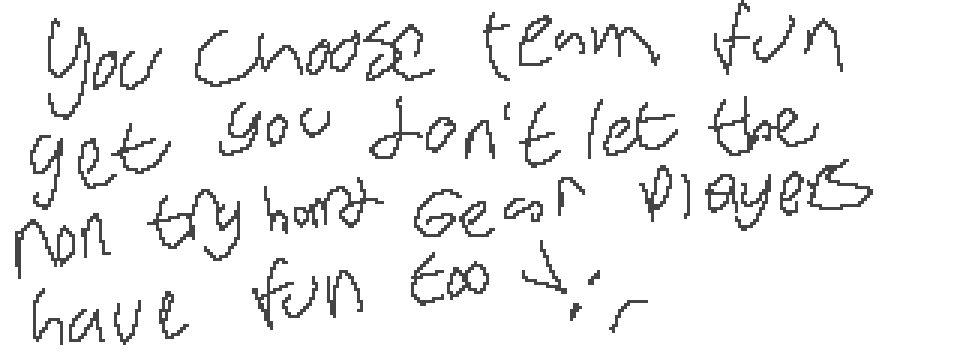 You choose team fun
get you don't let the
non try hard Gear players
have fun too